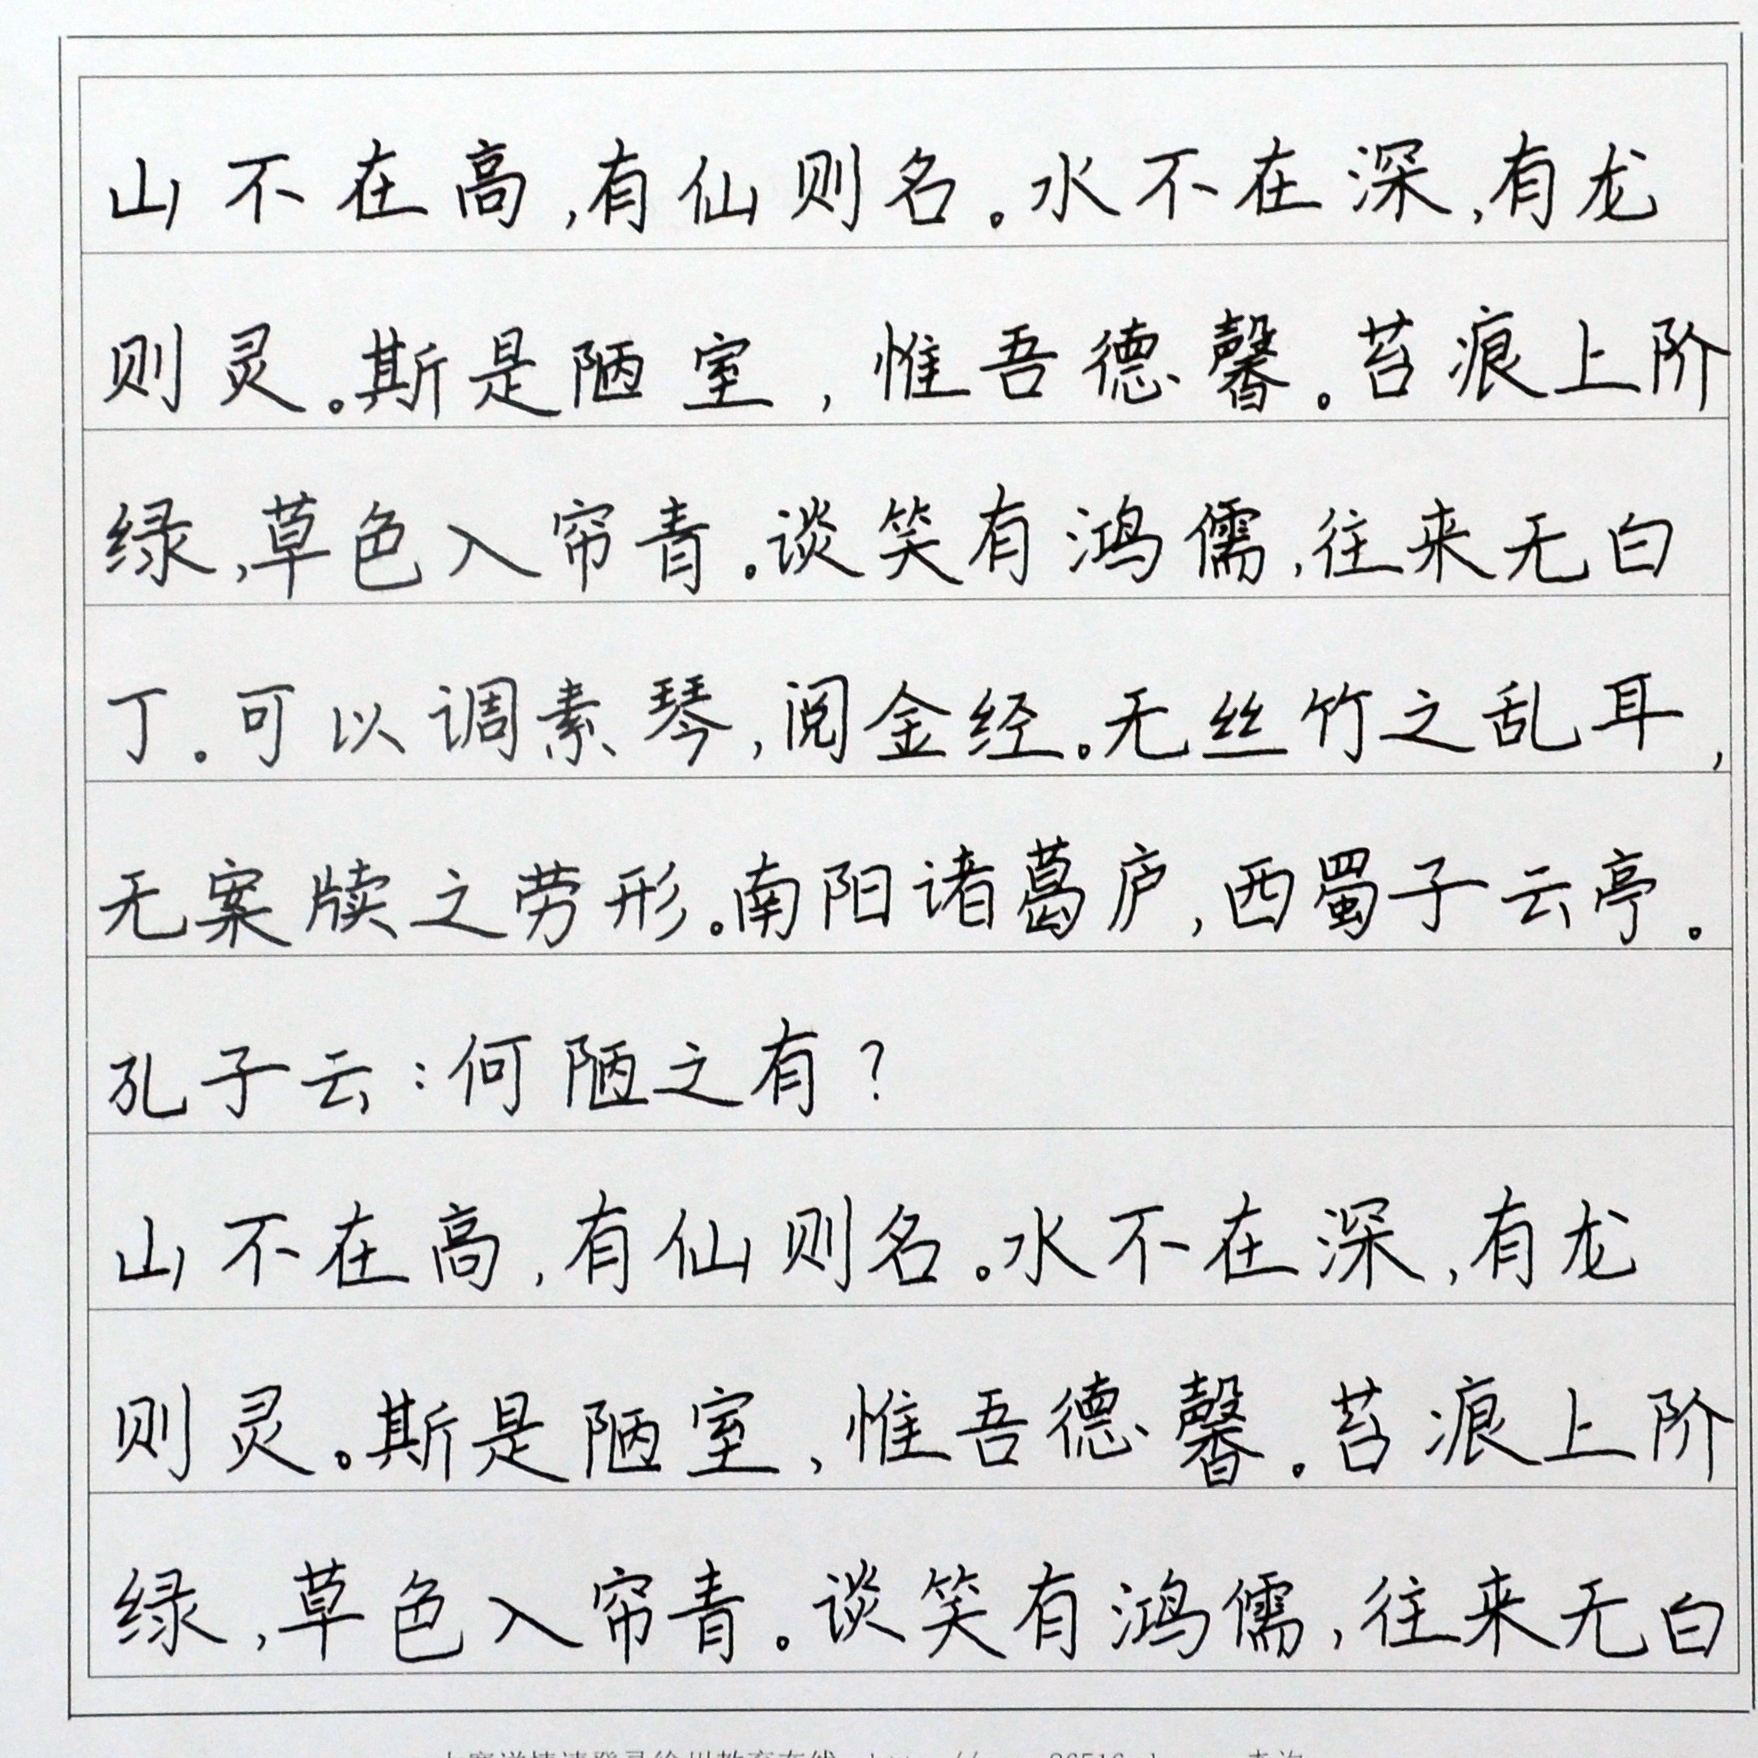 山不在高,有仙则名。水不在深,有龙
则灵。斯是陋室,惟吾德馨。苔痕上阶
绿,草色入帘青。谈笑有鸿儒,往来无白
丁。可以调素琴,阅金经。无丝竹之乱耳,
无案牍之劳形。南阳诸葛庐,西蜀子云亭。
孔子云:何陋之有?
山不在高,有仙则名。水不在深,有龙
则灵。斯是陋室,惟吾德馨。苔痕上阶
绿,草色入帘青。谈笑有鸿儒,往来无白